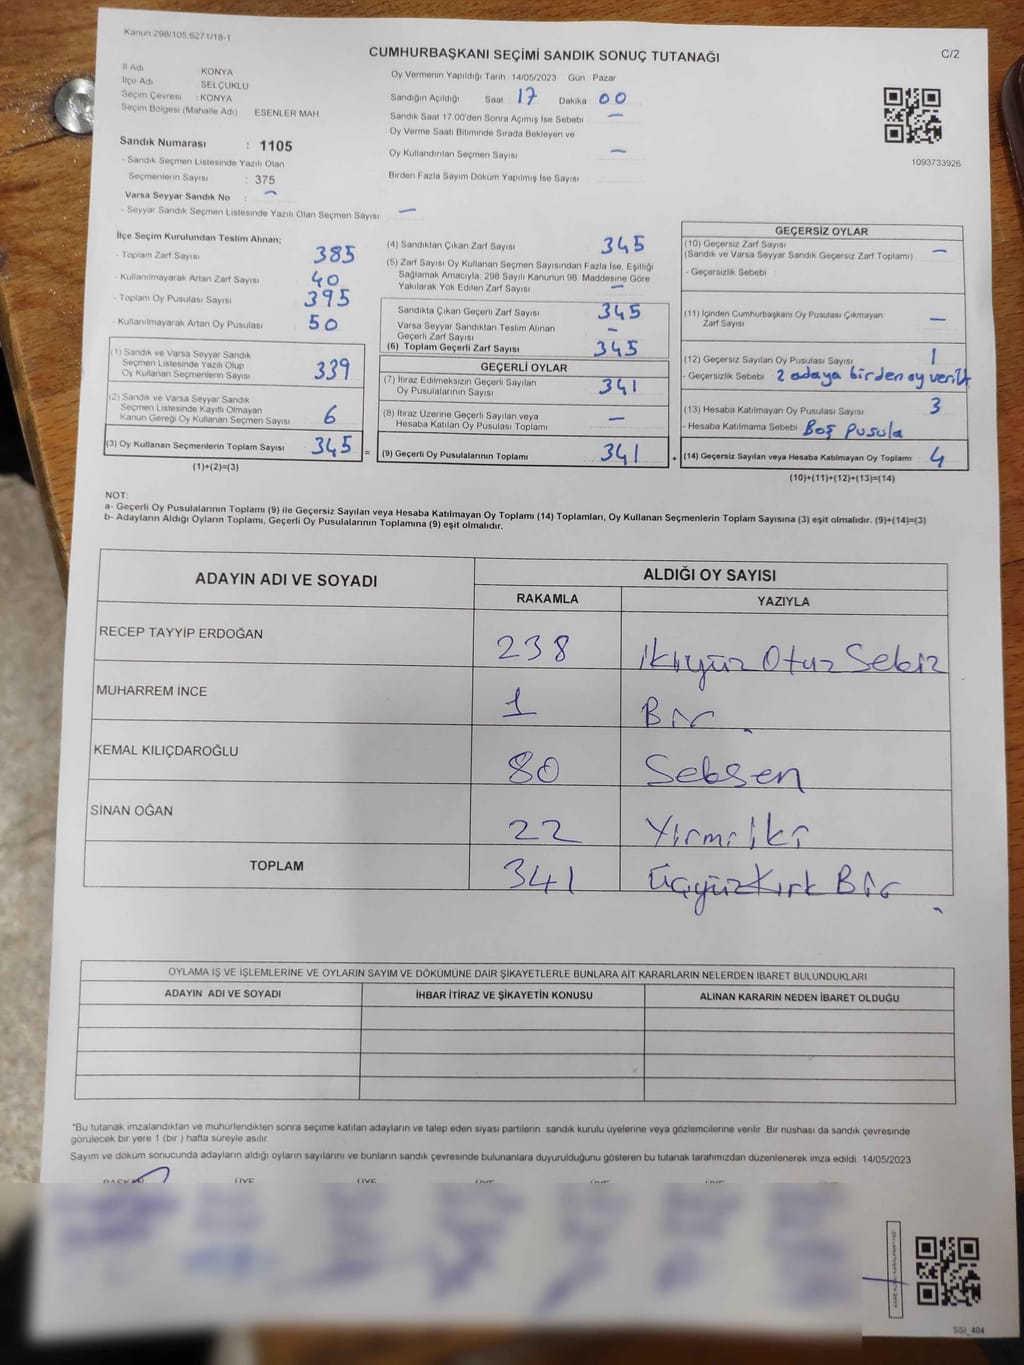 Kanun 298/105.6271/18-1
CUMHURBAŞKANI SEÇİMİ SANDIK SONUÇ TUTANAĞI
C/2
İl Adı KONYA
İlçe Adı SELÇUKLU
Seçim Çevresi : KONYA
Seçim Bölgesi (Mahalle Adı) ESENLER MAH
Oy Vermenin Yapıldığı Tarih 14/05/2023 Gün Pazar
Sandığın Açıldığı Saat 17 Dakika 00
Sandık Saat 17 00'den Sonra Açımış İse Sebebi —
Oy Verme Saati Bitiminde Sırada Bekleyen ve
Oy Kullandırılan Seçmen Sayısı —
Birden Fazla Sayım Döküm Yapılmış İse Sayısı
1093733926
Sandık Numarası : 1105
- Sandık Seçmen Listesinde Yazılı Olan
Seçmenlerin Sayısı : 375
Varsa Seyyar Sandık No : —
- Seyyar Sandık Seçmen Listesinde Yazılı Olan Seçmen Sayısı —
İlçe Seçim Kurulundan Teslim Alınan;
- Toplam Zarf Sayısı 385
- Kullanılmayarak Artan Zarf Sayısı 40
- Toplam Oy Pusulası Sayısı 395
- Kullanılmayarak Artan Oy Pusulası 50
(1) Sandık ve Varsa Seyyar Sandık
Seçmen Listesinde Yazılı Olup
Oy Kullanan Seçmenlerin Sayısı 339
(2) Sandık ve Varsa Seyyar Sandık
Seçmen Listesinde Kayıtlı Olmayan
Kanun Gereği Oy Kullanan Seçmen Sayısı 6
(3) Oy Kullanan Seçmenlerin Toplam Sayısı 345 =
(1)+(2)=(3)
(4) Sandıktan Çıkan Zarf Sayısı 345
(5) Zarf Sayısı Oy Kullanan Seçmen Sayısından Fazla İse, Eşitliği
Sağlamak Amacıyla, 298 Sayılı Kanunun 98. Maddesine Göre
Yakılarak Yok Edilen Zarf Sayısı —
Sandıkta Çıkan Geçerli Zarf Sayısı 345
Varsa Seyyar Sandıktan Teslim Alınan
Geçerli Zarf Sayısı —
(6) Toplam Geçerli Zarf Sayısı 345
GEÇERLİ OYLAR
(7) İtiraz Edilmeksizin Geçerli Sayılan
Oy Pusulalarının Sayısı 341
(8) İtiraz Üzerine Geçerli Sayılan veya
Hesaba Katılan Oy Pusulası Toplamı —
(9) Geçerli Oy Pusulalarının Toplamı 341 +
GEÇERSİZ OYLAR
(10) Geçersiz Zarf Sayısı
(Sandık ve Varsa Seyyar Sandık Geçersiz Zarf Toplamı) —
- Geçersizlik Sebebi
(11) İçinden Cumhurbaşkanı Oy Pusulası Çıkmayan
Zarf Sayısı —
(12) Geçersiz Sayılan Oy Pusulası Sayısı 1
- Geçersizlik Sebebi 2 adaya birden oy verildi
(13) Hesaba Katılmayan Oy Pusulası Sayısı 3
- Hesaba Katılmama Sebebi Boş pusula
(14) Geçersiz Sayılan veya Hesaba Katılmayan Oy Toplamı 4
(10)+(11)+(12)+(13)=(14)
NOT:
a- Geçerli Oy Pusulalarının Toplamı (9) ile Geçersiz Sayılan veya Hesaba Katılmayan Oy Toplamı (14) Toplamları, Oy Kullanan Seçmenlerin Toplam Sayısına (3) eşit olmalıdır. (9)+(14)=(3)
b- Adayların Aldığı Oyların Toplamı, Geçerli Oy Pusulalarının Toplamına (9) eşit olmalıdır.
ADAYIN ADI VE SOYADI ALDIĞI OY SAYISI
RAKAMLA YAZIYLA
RECEP TAYYİP ERDOĞAN 238 İkiyüz Otuz Sekiz
MUHARREM İNCE 1 Bir
KEMAL KILIÇDAROĞLU 80 Seksen
SİNAN OĞAN 22 Yirmi iki
TOPLAM 341 Üçyüz Kırk Bir
OYLAMA İŞ VE İŞLEMLERİNE VE OYLARIN SAYIM VE DÖKÜMÜNE DAİR ŞİKAYETLERLE BUNLARA AİT KARARLARIN NELERDEN İBARET BULUNDUKLARI
ADAYIN ADI VE SOYADI İHBAR İTİRAZ VE ŞİKAYETİN KONUSU ALINAN KARARIN NEDEN İBARET OLDUĞU
*Bu tutanak imzalandıktan ve mühürlendikten sonra seçime katılan adayların ve talep eden siyasi partilerin sandık kurulu üyelerine veya gözlemcilerine verilir. Bir nüshası da sandık çevresinde
görülecek bir yere 1 (bir ) hafta süreyle asılır
Sayım ve döküm sonucunda adayların aldığı oyların sayılarını ve bunların sandık çevresinde bulunanlara duyurulduğunu gösteren bu tutanak tarafımızdan düzenlenerek imza edildi. 14/05/2023
BAŞKAN ÜYE ÜYE ÜYE ÜYE ÜYE
SSI_404